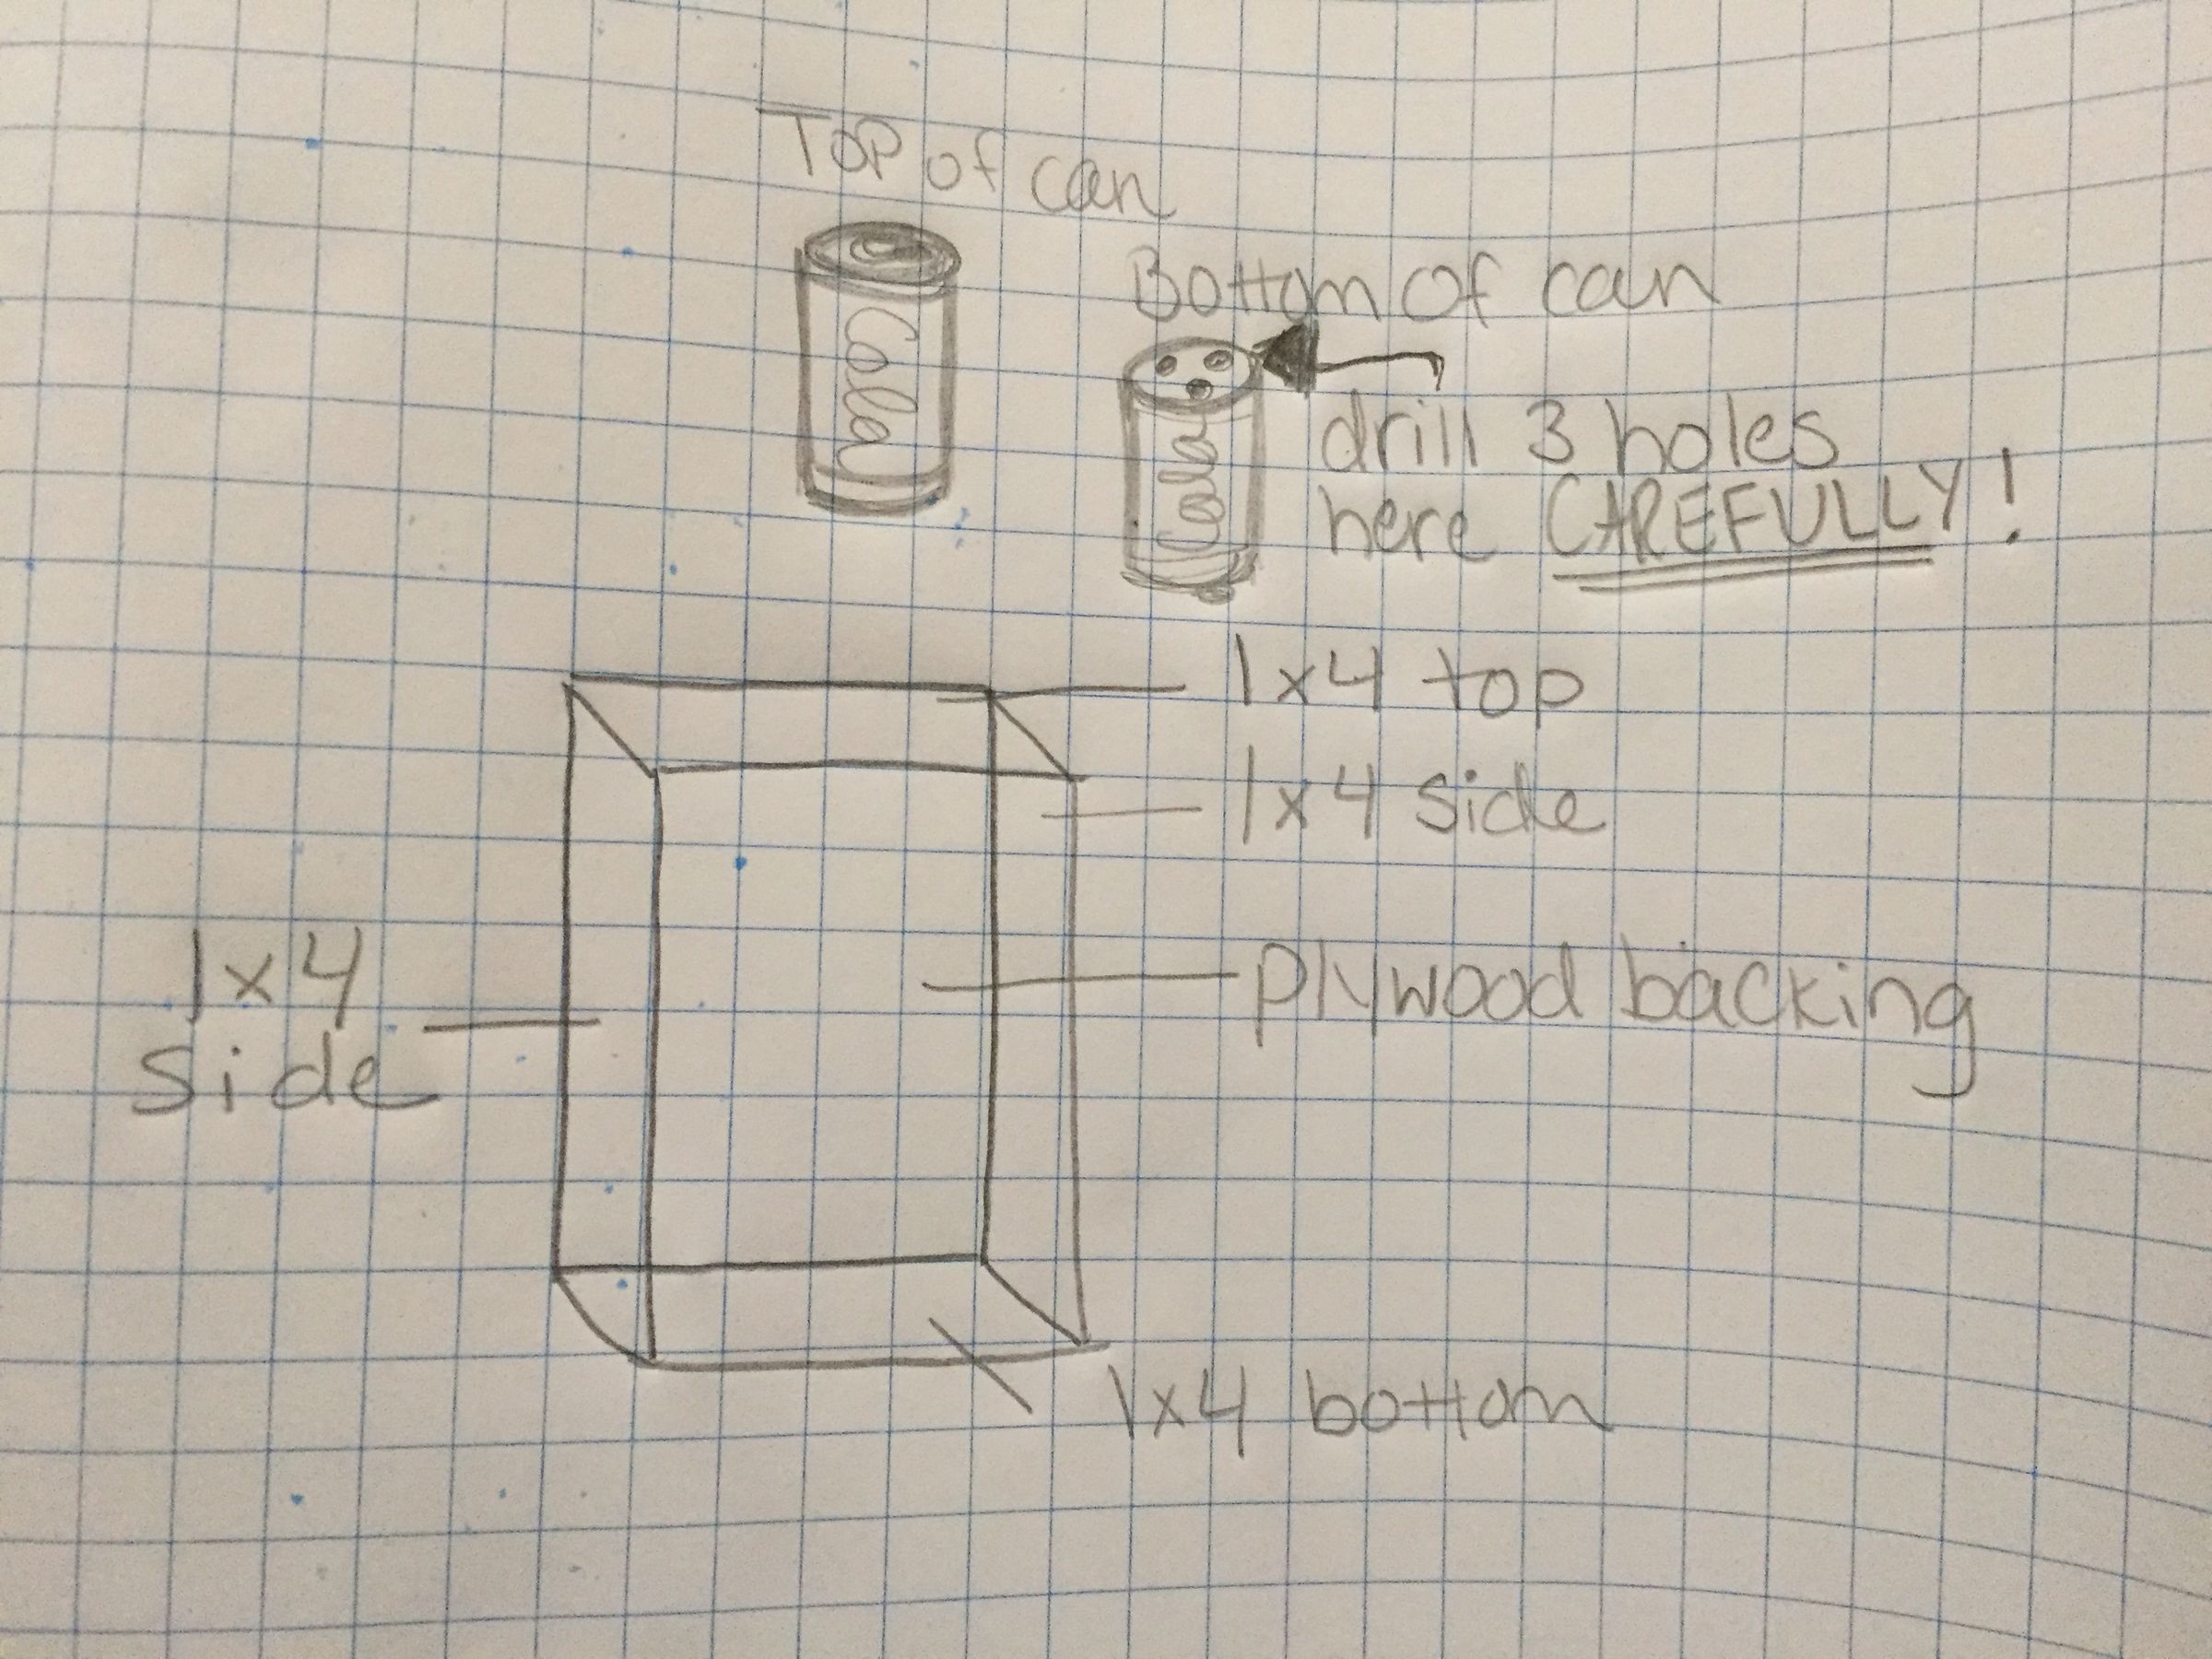 TOP of can
Cola
Bottom of can
Cola
drill 3 holes
here CAREFULLY!
1x4 top
1x4 side
1x4
side
plywood backing
1x4 bottom